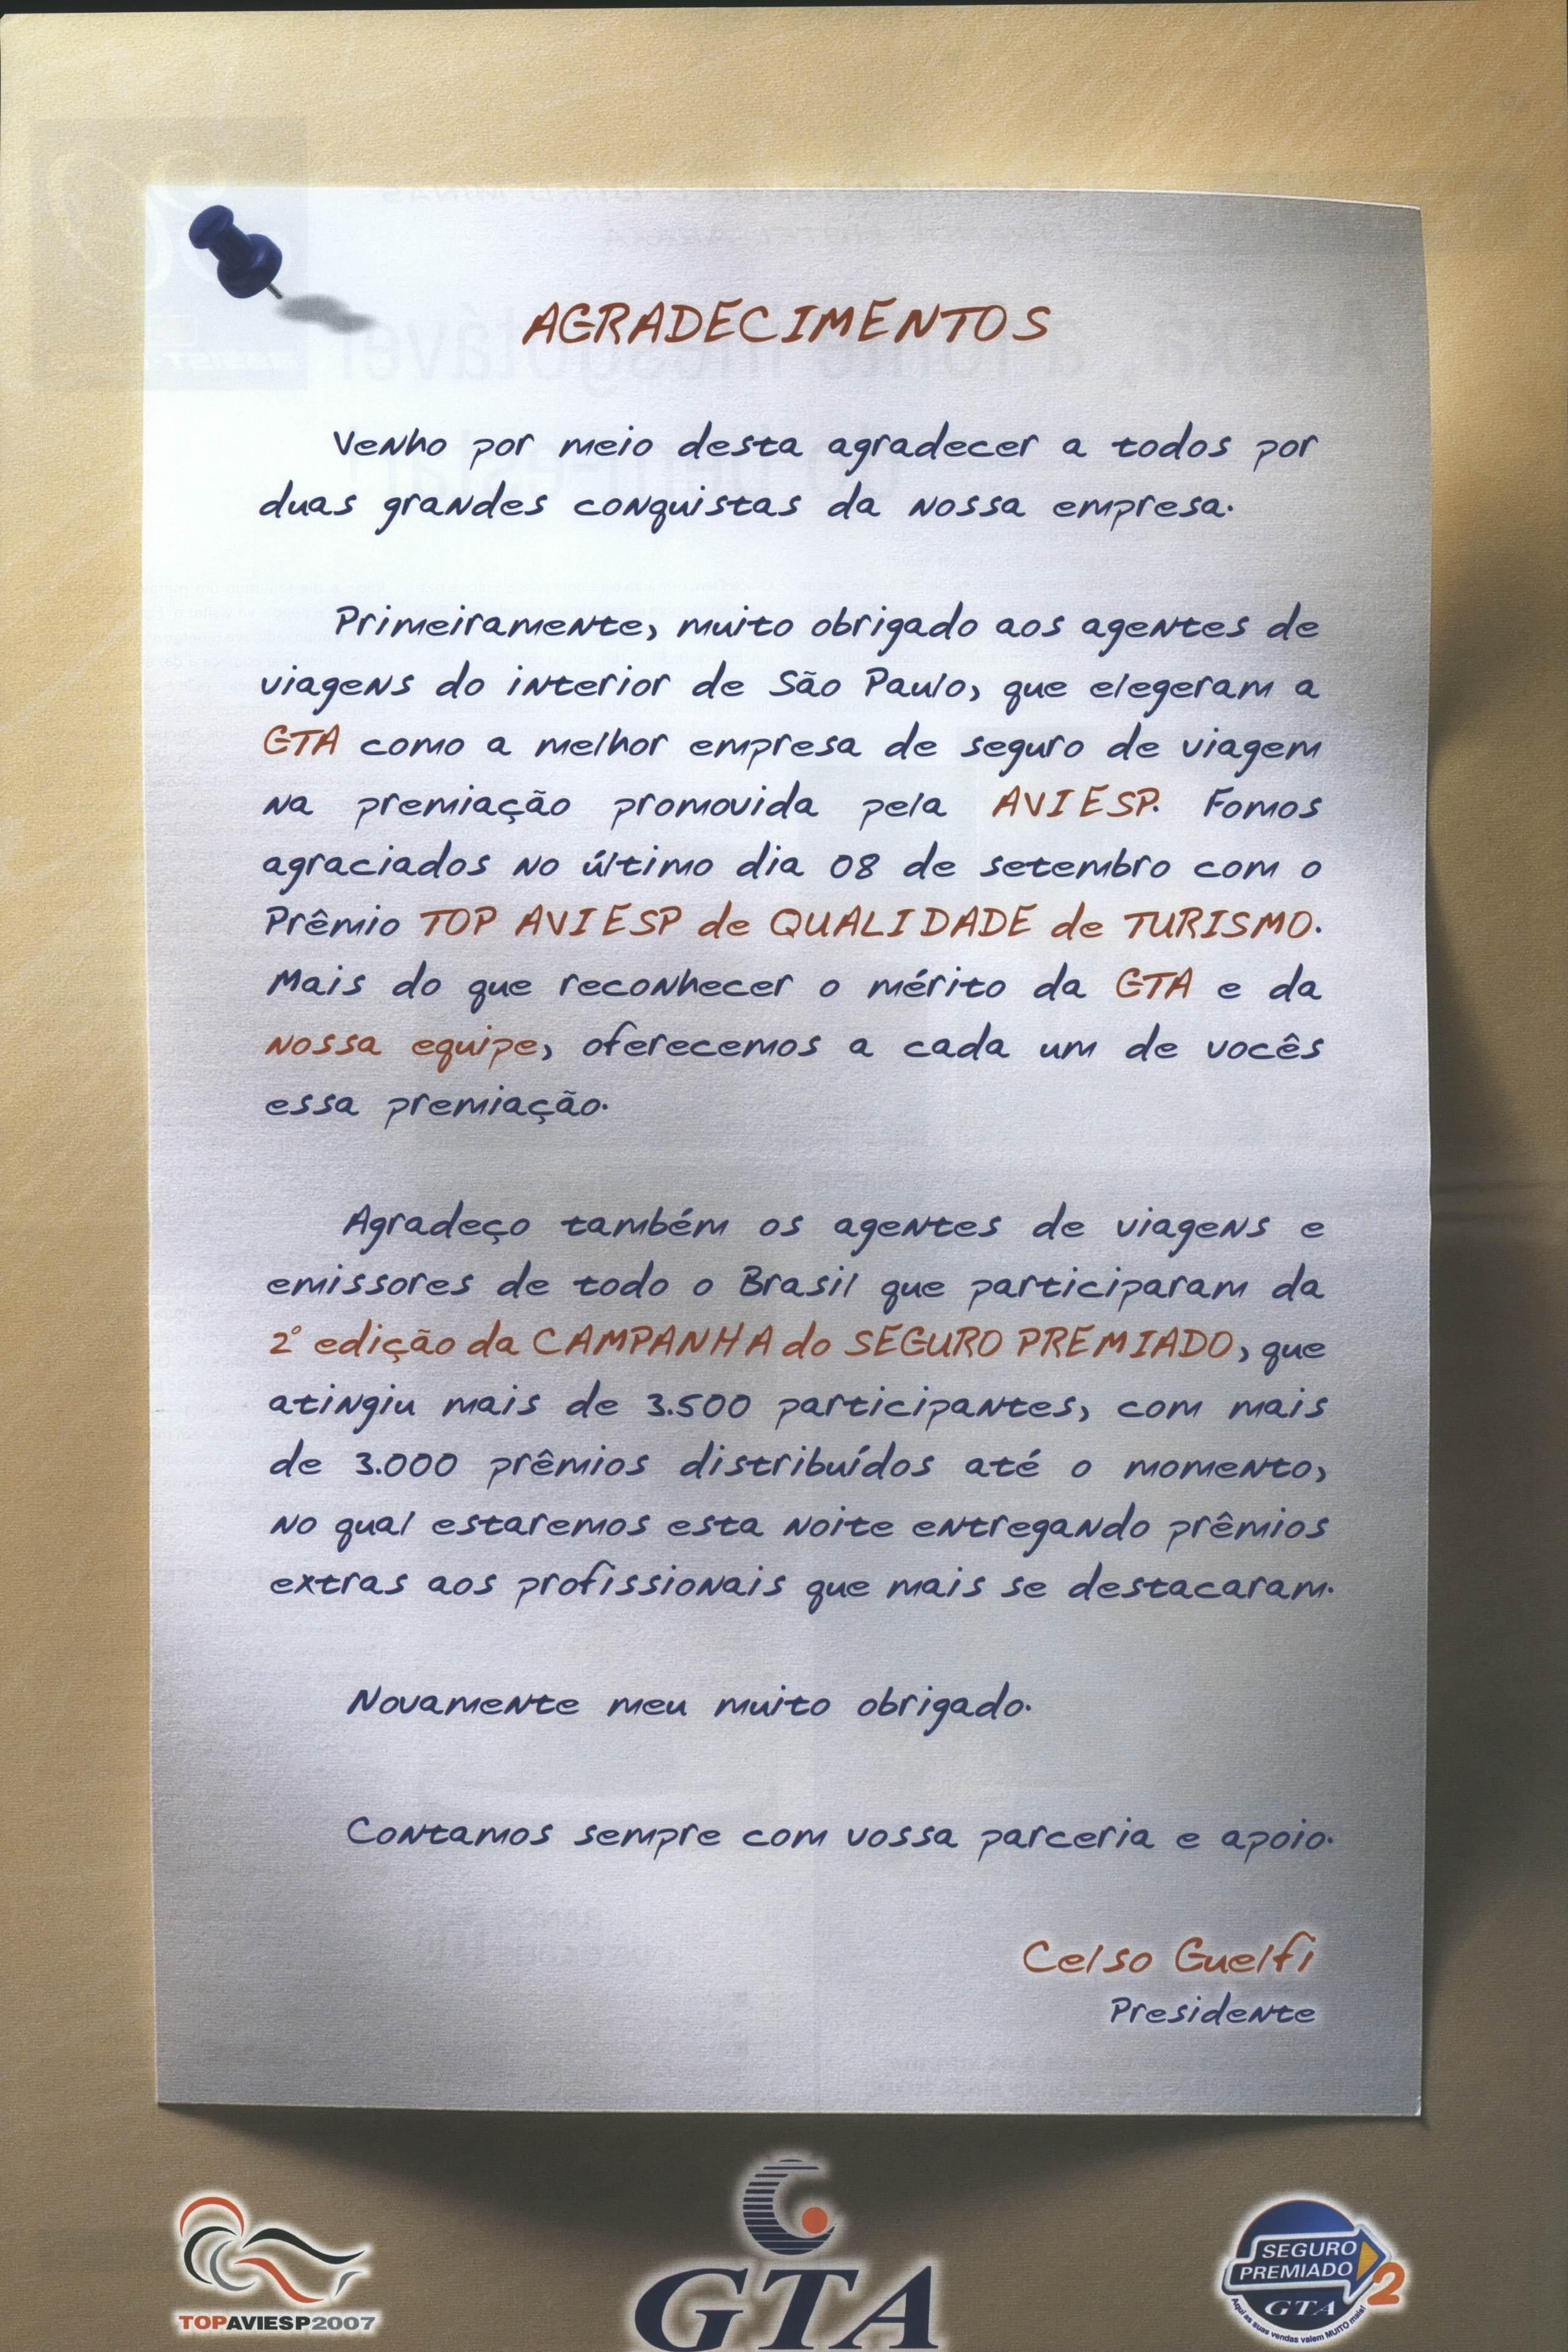 AGRADECIMENTOS
Venho por meio desta agradecer a todos por
duas grandes conquistas da nossa empresa.
Primeiramente, muito obrigado aos agentes de
viagens do interior de São Paulo, que elegeram a
GTA como a melhor empresa de seguro de viagem
na premiação promovida pela AVIESP. Fomos
agraciados no último dia 08 de setembro com o
Prêmio TOP AVIESP de QUALIDADE de TURISMO.
Mais do que reconhecer o mérito da GTA e da
nossa equipe, oferecemos a cada um de vocês
essa premiação.
Agradeço também os agentes de viagens e
emissores de todo o Brasil que participaram da
2° edição da CAMPANHA do SEGURO PREMIADO, que
atingiu mais de 3.500 participantes, com mais
de 3.000 prêmios distribuídos até o momento,
no qual estaremos esta noite entregando prêmios
extras aos profissionais que mais se destacaram.
Novamente meu muito obrigado.
Contamos sempre com vossa parceria e apoio.
Celso Guelfi
Presidente
TOPAVIESP2007
GTA
SEGURO
PREMIADO 2
GTA
Aqui as suas vendas valem MUITO mais!